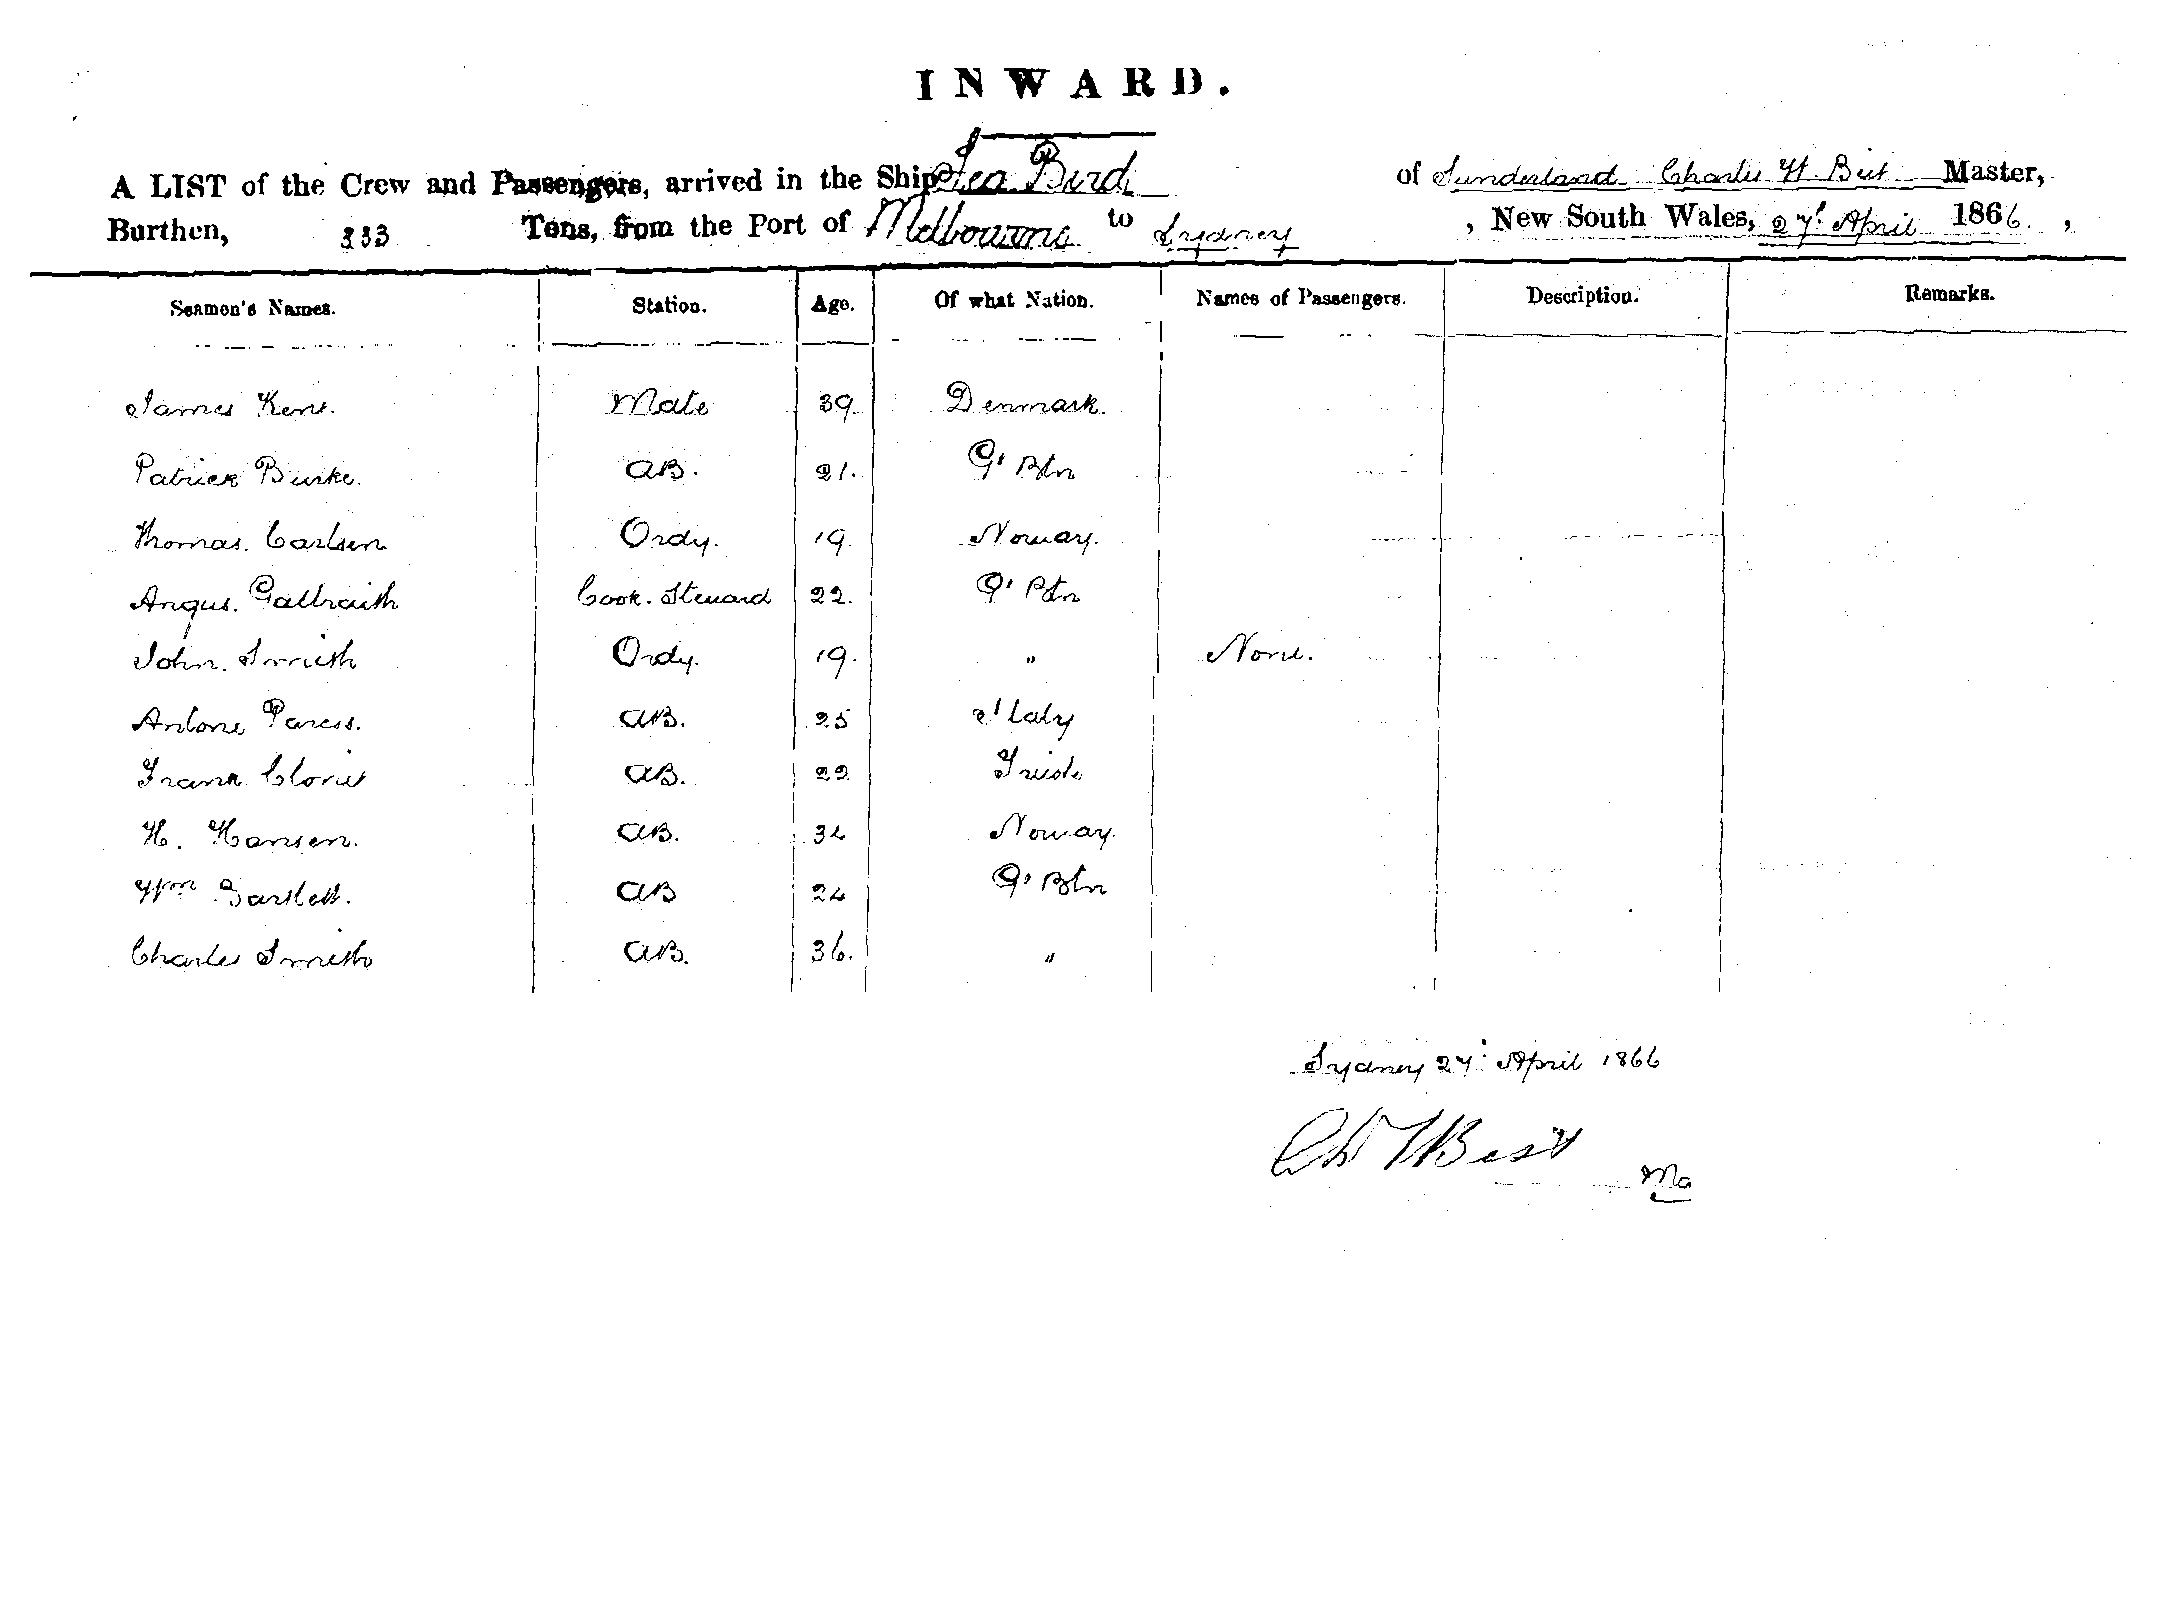 INWARD.
A LIST of the Crew and Passengers, arrived in the Ship Sea Bird of Sunderland Charles H. Best Master,
Burthen, 333 Tons, from the Port of Melbourne to Sydney, New South Wales, 27' April 1866,
Seamen's Names. Station. Age. Of what Nation. Names of Passengers. Description. Remarks.
James Kent. Mate 39 Denmark.
Patrick Burke. AB. 21. Gt Btn
Thomas. Carlsen Ordy. 19. Norway.
Angus. Galbraith Cook. Steward 22. Gt Btn
John. Smith Ordy. 19. " None.
Antone AB. 25 Italy
Frank AB. 22
H. Hansen. AB. 34 Norway.
Wm Bartlett. AB 24 Gt Btn
Charles Smith AB. 36. "
Sydney 27' April 1866
Best
Ma